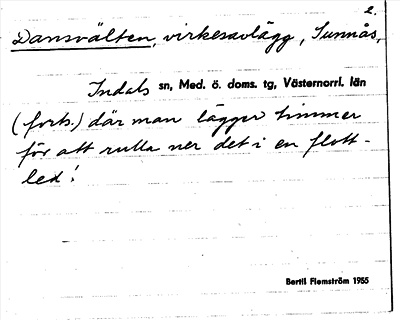 2.
Dansvälten, virkesavlägg, Sunnås,
Indals sn, Med. ö. doms. tg, Västernorrl. län
(forts.) där man lägger timmer
för att rulla ner det i en flott-
led.
Bertil Flemström 1955